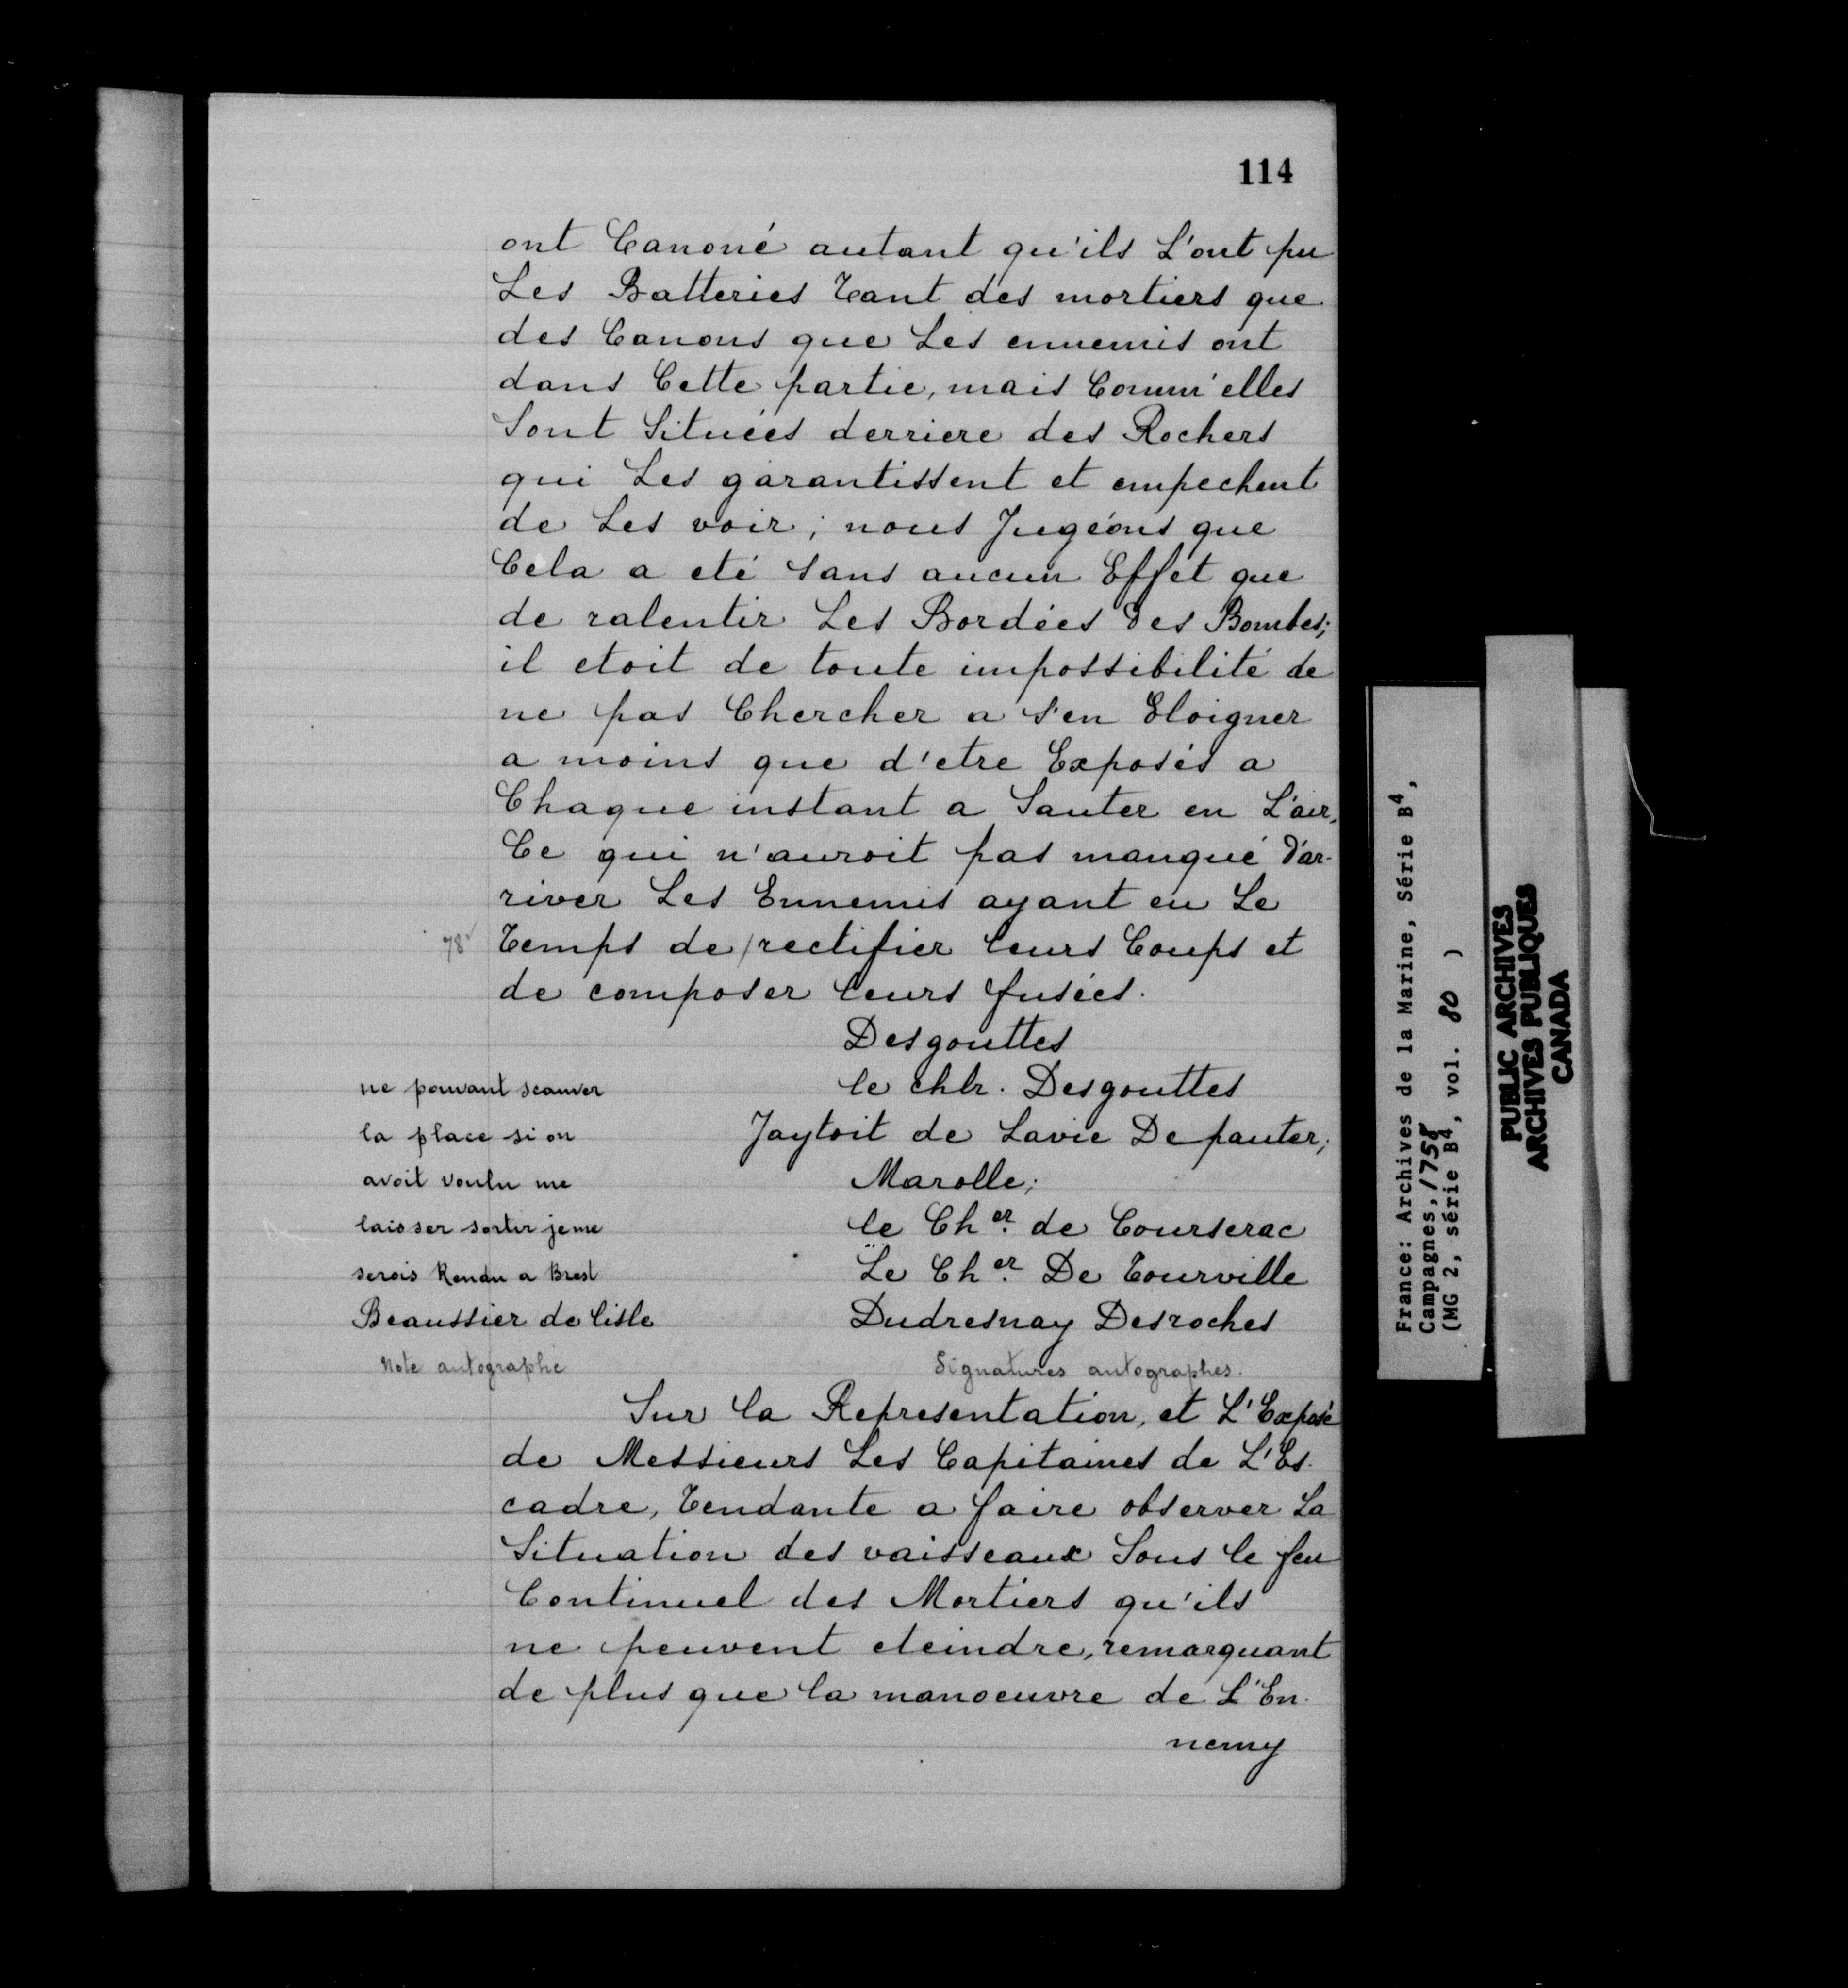 114
ont Canoné autant qu'ils L'ont pu
Les Batteries Tant des mortiers que
des Canons que Les ennemis ont
dans Cette partie, mais Comm'elles
Sont Situées derriere des Rochers
qui Les garantissent et empechent
de Les voir; nous Jugéons que
Cela a eté Sans aucun Effet que
de ralentir Les Bordées des Bombes;
il etoit de toute impossibilité de
ne pas Chercher a s'en Eloigner
a moins que d'etre Exposés a
Chaque instant a Sauter en L'air,
Ce qui n'auroit pas manqué d'ar-
river Les Ennemis ayant eu Le
78v Temps de/rectifier leurs Coups et
de composer leurs fusées.
Desgouttes
le chlr. Desgouttes
Jaytoit de Lavie Depauter;
Marolle;
le Cher. de Courserac
Le Cher. De Tourville
Dudresnay Desroches
Signatures autographes.
ne pouvant scauver
la place si on
avoit voulu me
laisser sortir jeme
serois Rendu a Brest
Beaussier de lisle
Note autographe
Sur la Representation, et L'Exposé
de Messieurs Les Capitaines de L'Es-
cadre, Tendante a faire observer La
Situation des vaisseaux Sous le feu
Continuel des Mortiers qu'ils
ne peuvent eteindre, remarquant
de plus que la manoeuvre de L'En-
nemy
France: Archives de la Marine, Série B4,
Campagnes, 1758
(MG 2, série B4, vol. 80 )
PUBLIC ARCHIVES
ARCHIVES PUBLIQUES
CANADA